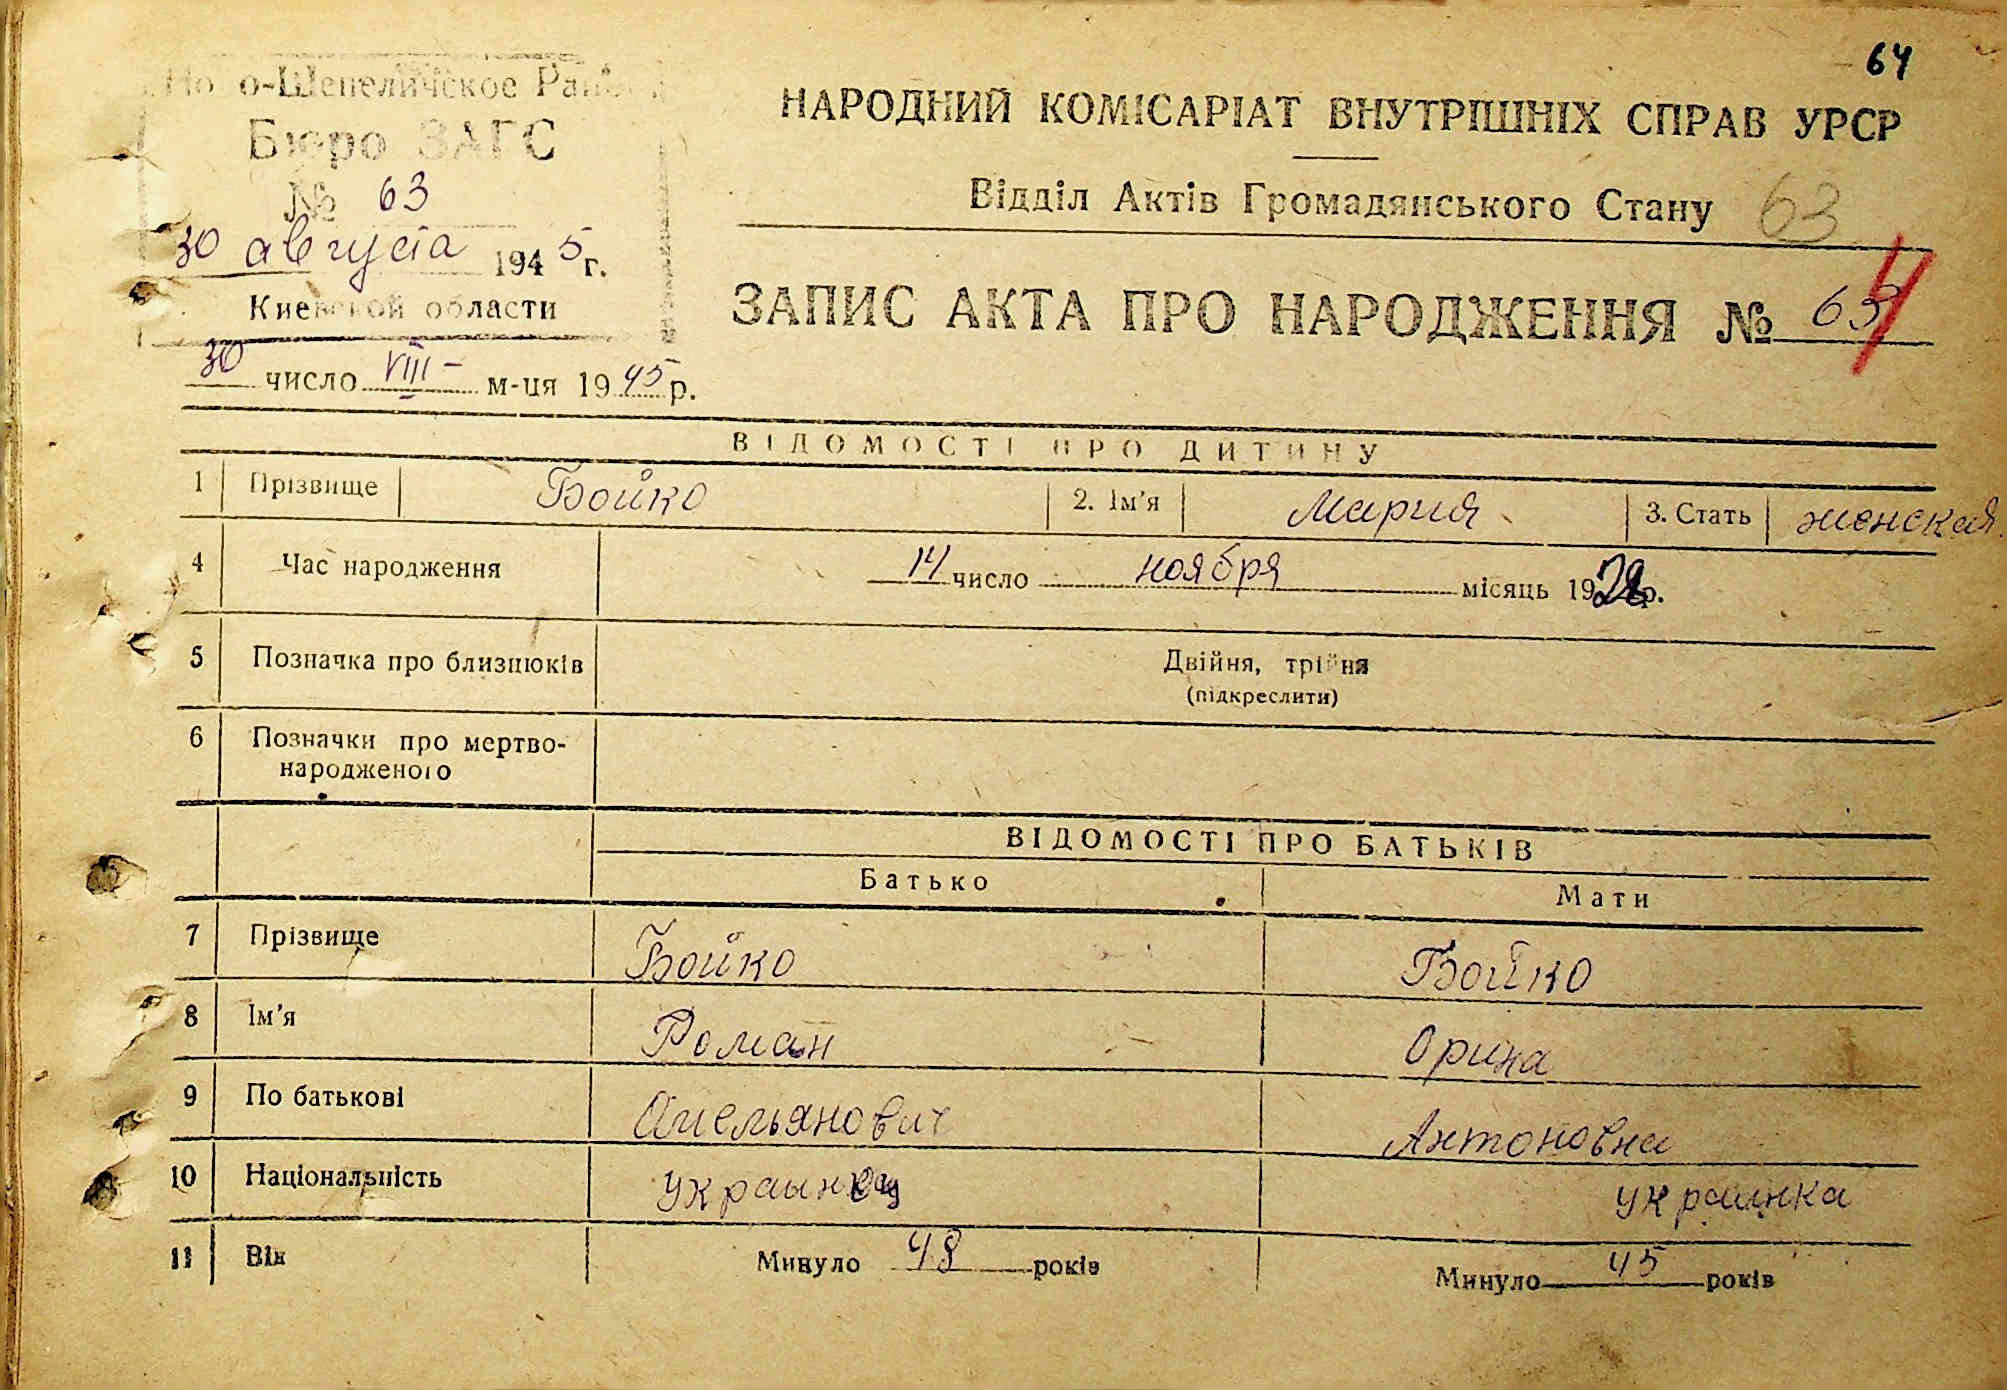 64
Ново-Шепеличское Рай
Бюро ЗАГС
№ 63
30 августа 1945 г.
Киевской области
НАРОДНИЙ КОМІСАРІАТ ВНУТРІШНІХ СПРАВ УРСР
Відділ Актів Громадянського Стану 63
ЗАПИС АКТА ПРО НАРОДЖЕННЯ № 63
30 число VIII- м-ця 1945 р.
ВІДОМОСТІ ПРО ДИТИНУ
1 Прізвище Бойко 2. Ім'я Мария 3. Стать женская
4 Час народження 14 число ноября місяць 1928 р.
5 Позначка про близнюків Двійня, трійня
(підкреслити)
6 Позначки про мертво-
народженого
ВІДОМОСТІ ПРО БАТЬКІВ
Батько Мати
7 Прізвище Бойко Бойко
8 Ім'я Роман Орина
9 По батькові Амельянович Антоновна
10 Національність украинец украинка
11 Вік Минуло 48 років Минуло 45 років